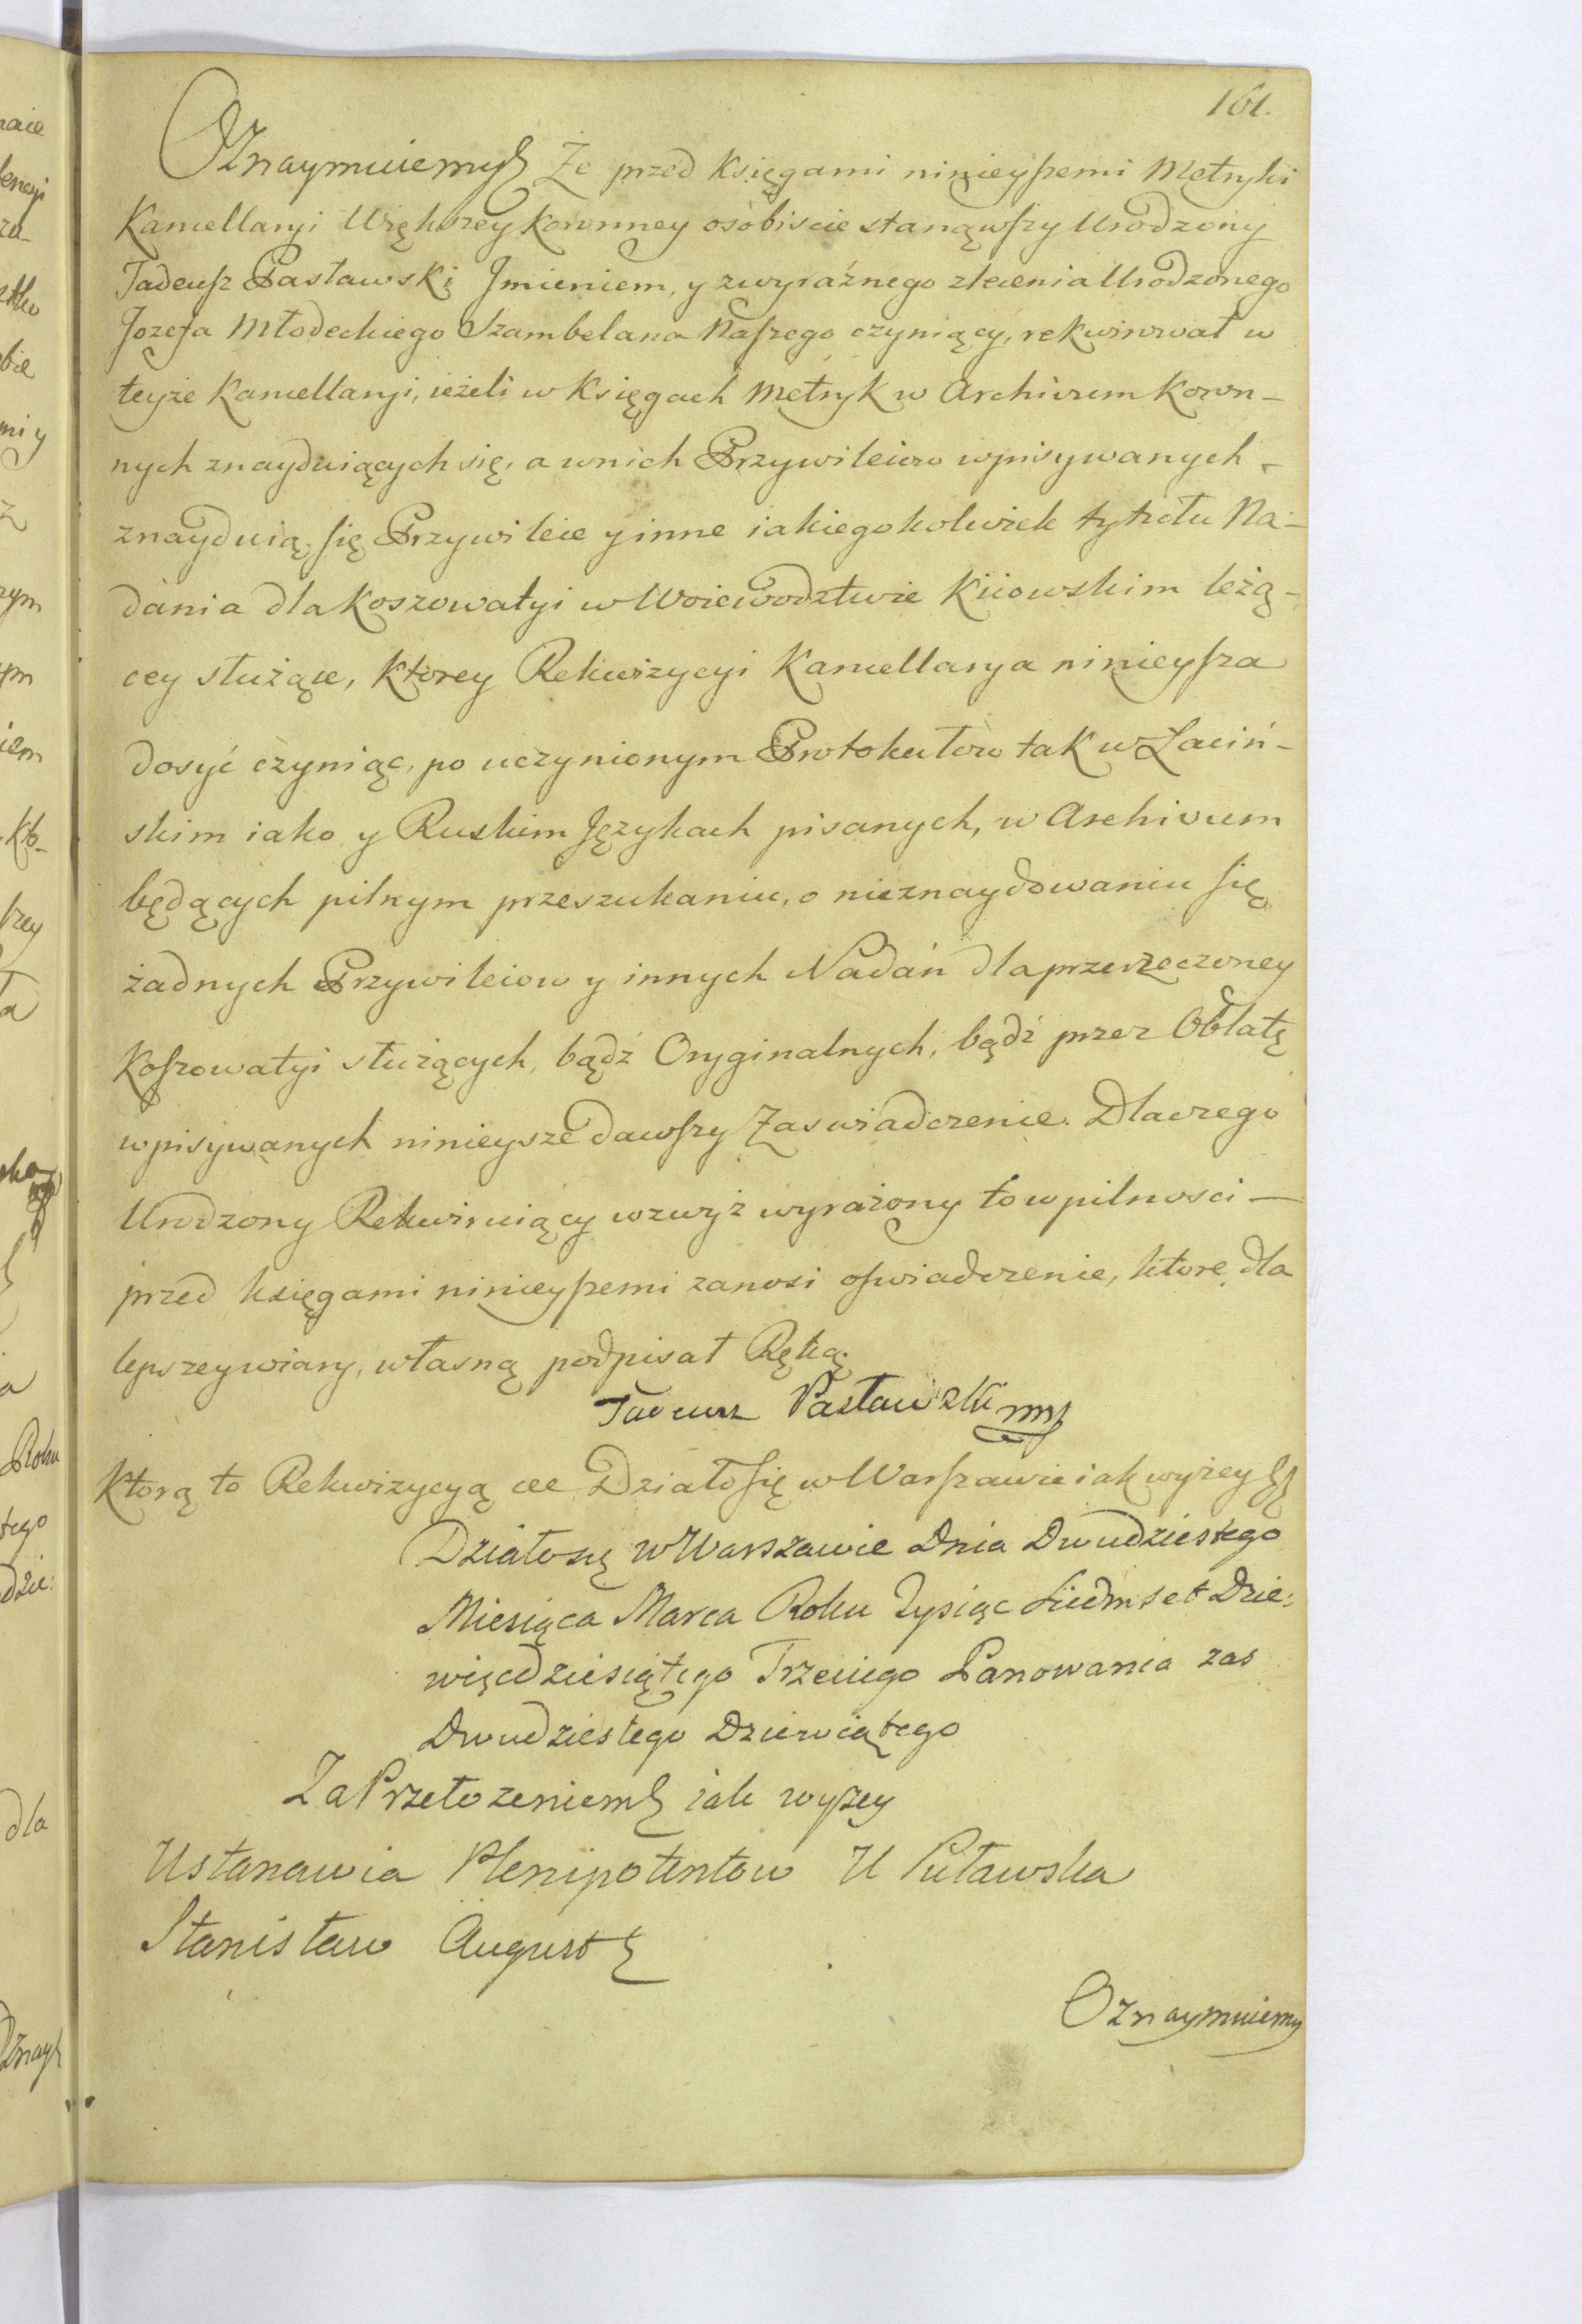 161.
Oznaymuiemy Że przed Księgami ninieyszemi Metryki
Kancellaryi Większey Koronney osobiscie stanąwszy Urodzony
Tadeusz Pasławski Jmieniem, y zwyraźnego zlecenia Urodzonego
Jozefa Młodeckiego Szambelana Naszego czyniący, rekwirował w
teyże Kancellaryi, ieżeli w Księgach Metryk w Archivum Koron-
nych znayduiących się, a wnich Przywileiow wpisywanych
znayduią się Przywileie y inne iakiegokolwiek tytułu Na-
dania dla Koszowatyi w Woiewodztwie Kiiowskim leżą-
cey służące, Ktorey Rekwizycyi Kancellarya ninieysza
dosyć czyniąc, po uczynionym Protokułow tak w Laciń-
skim iako y Ruskim Językach pisanych, w Archivum
będących pilnym przeszukaniu, o nieznaydowaniu się
żadnych Przywileiow y innych Nadań dla przerzeczoney
Koszowatyi służących, bądź Oryginalnych, bądź przez Oblatę
wpisywanych ninieysze dawszy Zaswiadczenie. Dlaczego
Urodzony Rekwiruiący wzwyż wyrażony to w pilnosci —
przed księgami ninieyszemi zanosi oswiadczenie, ktore dla
lepszey wiary, własną podpisał Ręką.
Tadeusz Pasławski mp
Ktorą to Rekwizycyą etc Działo się w Warszawie iak wyżey
Działo się w Warszawie Dnia Dwudziestego
Miesiąca Marca Roku Tysiąc Siedmset Dzie:
więcdziesiątego Trzeciego Panowania zas
Dwudziestego Dziewiątego
Za Przełożeniem iak wyżey
Ustanawia Plenipotentow U Puławska
Stanisław August
Oznaymuiemy